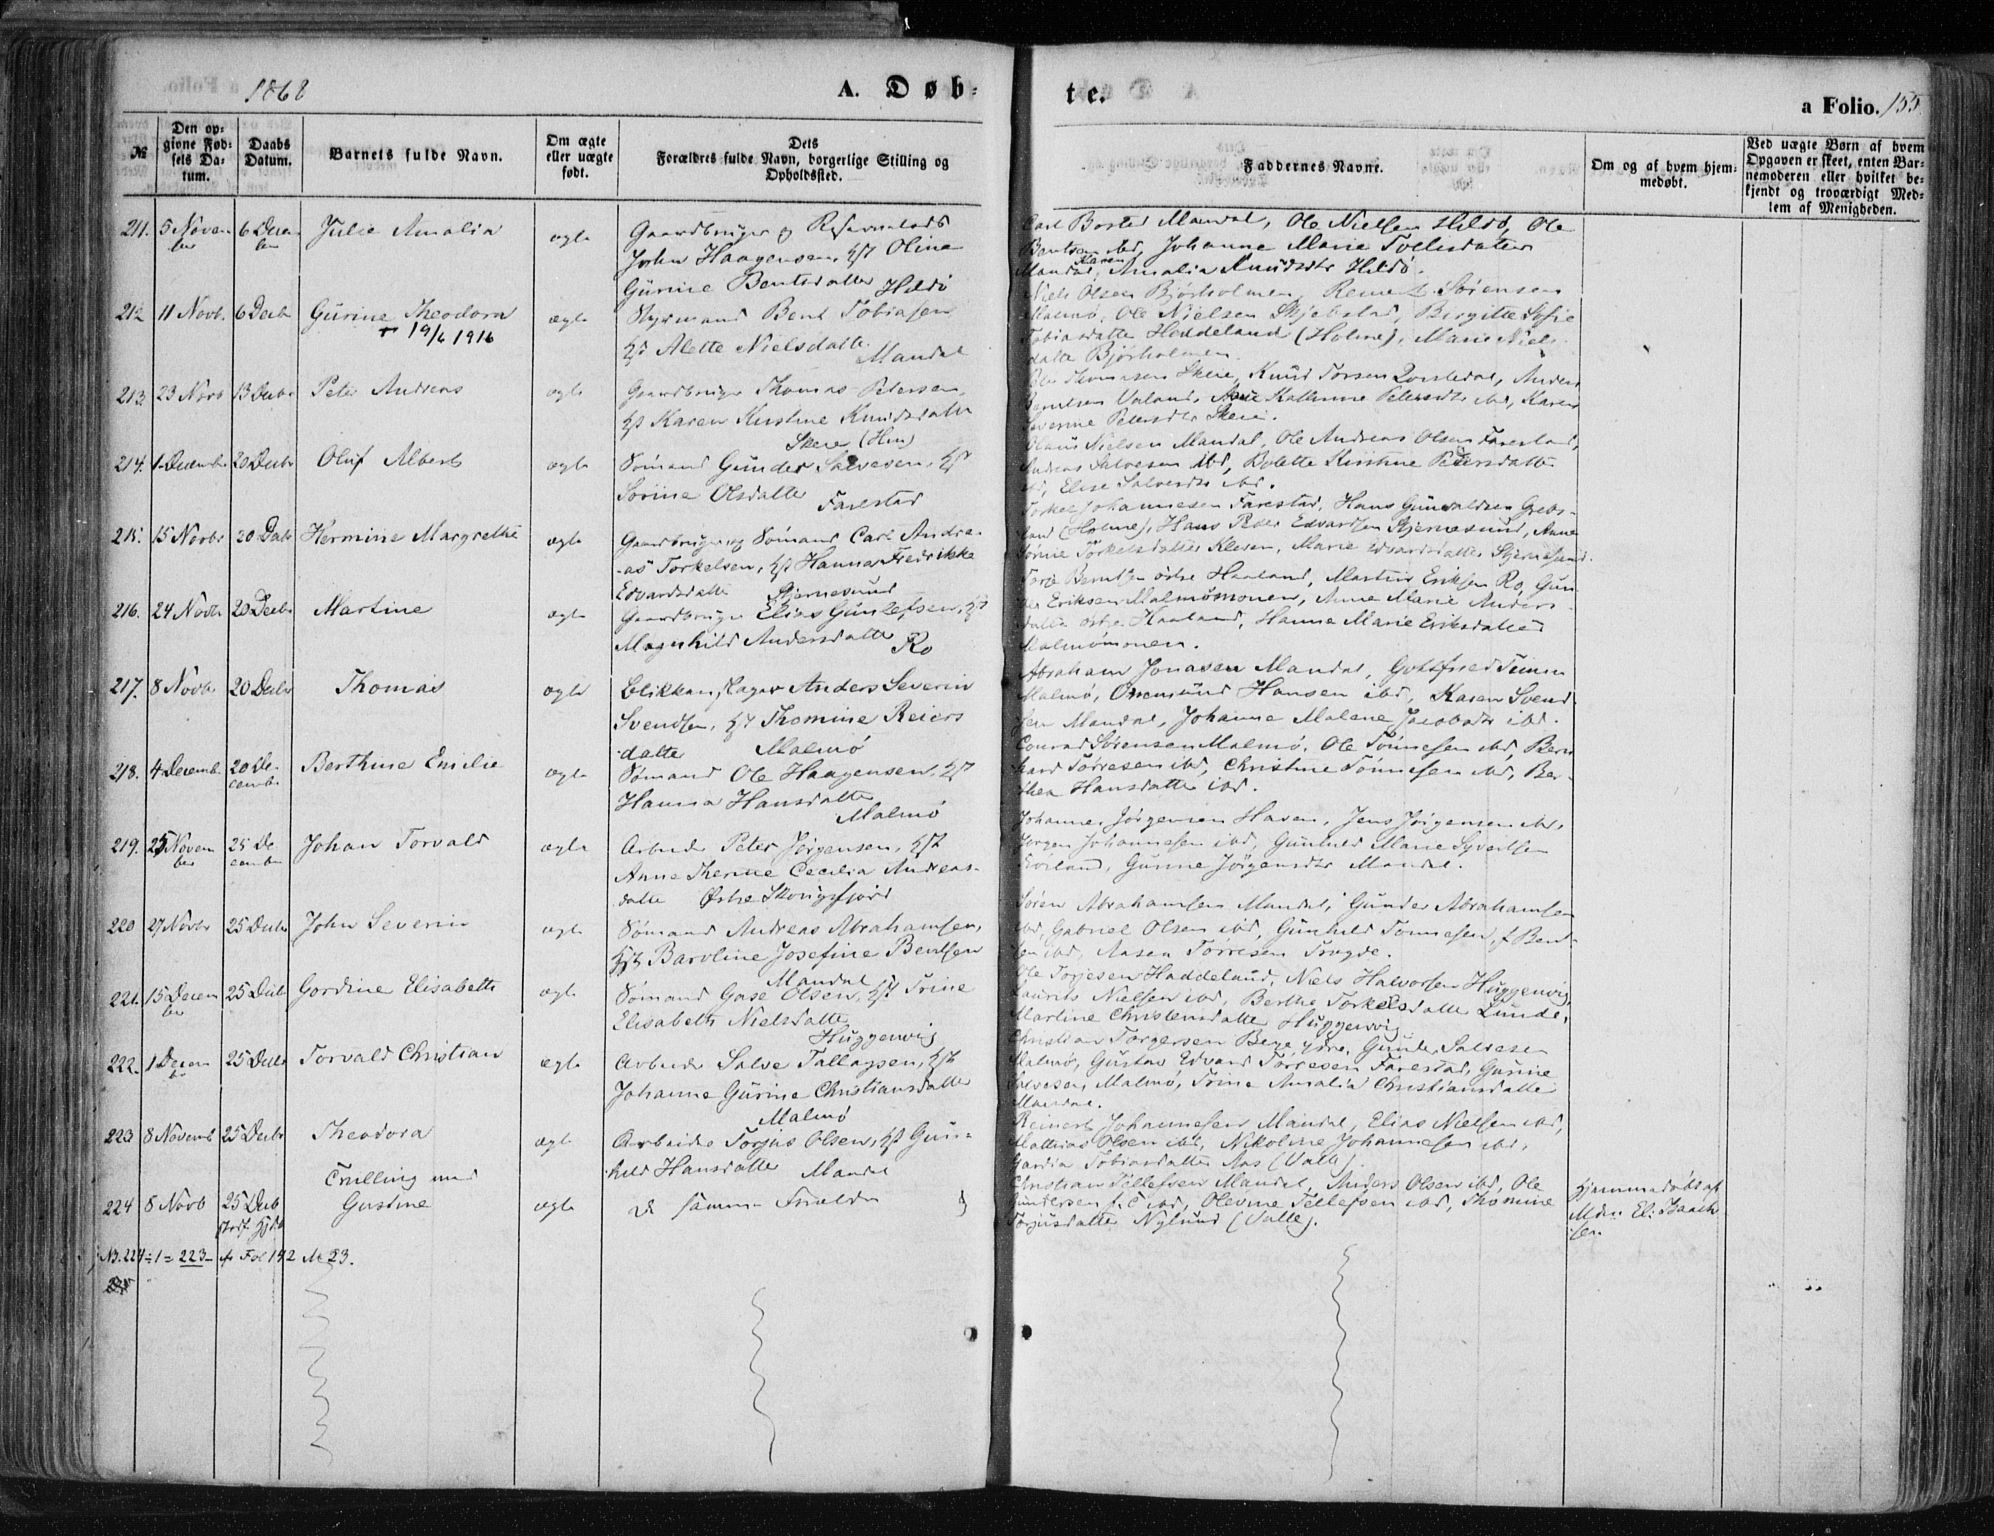 1868
A. Døb-
te.
a Folio. 155
№
Den op-
givne Fød-
sels Da-
tum.
Daabs
Datum.
Barnets fulde Navn.
Om ægte
eller uægte
født.
Dets
Forældres fulde Navn, borgerlige Stilling og
Opholdssted.
Faddernes Navne.
Om og af hvem hjem-
medøbt.
Ved uægte Børn af hvem
Opgaven er skeet, enten Bar-
nemoderen eller hvilket be-
kjendt og troværdigt Med-
lem af Menigheden.
211. 5 Novem-
ber
6 Decem-
ber
Julie Amalia
ægte
Gaardbruger og
John Haagensen, Hst Oline
Gurine Bentsdatter Hildø
Mandal, Ole Nielsen Hildø, Ole
Bentsen ibd, Johanne Marie Tollisdatter
Mandal, Karen Amalia Knudsdtr Hildø.
212 11 Novb. 6 Decbr Gurine Theodora
+ 19/6 1916
ægte
Styrmand Bent Tobiasen
Hst Alette Nielsdatter
Mandal
Niels Olsen Bjørholmen, Reinert Sørensen
Malmø, Ole Nielsen Skjebstad, Birgitte Sofie
Tobiasdatter Haddeland (Holme), Marie Niels-
datter Bjørholmen.
213. 23 Novb 13 Decbr Peter Andreas
ægte
Gaardbruger Thomas Petersen,
Hst Karen Kirstine Knudsdatter
Skeie
Thomasen Skeie, Knud Torsen, Anders
Berntsen Valand, Kathrine Petersdtr ibd, Karen
Severine Petersdtr Skeie.
214. 1 Decembr 20 Decbr Oluf Albert
ægte
Sømand Gunder Salvesen, Hst
Sørine Olsdatter
Farestad
Olaus Nielsen Mandal, Ole Andreas Olsen Farestad,
Andreas Salvesen ibd, Bolette Kirstine Petersdatter
ibd, Elise Salvesdtr ibd.
215. 15 Novbr 20 Decbr Hermine Margrethe
ægte
Gaardbruger og Sømand Carl Andre-
as Torkelsen, Hst Hanna Fredrikke
Edvardsdatter Stjernesund
Torkel Johannesen Farestad, Hans Gunvaldsen Grebs-
land (Holme), Hans Peter Edvardsen Stjernesund, Anne
Sørine Torkelsdatter Kleven, Marie Edvardsdatter Stjernesund.
216. 24 Novbr 20 Decbr Martine
ægte
Gaardbruger Elias Gunlefsen, Hst
Magnhild Andersdatter
Ro
Torje Berntsen østre Haaland, Martin Eriksen Ro, Gun-
der Eriksen Malmømonen, Anne Marie Anders-
datter østre Haaland, Hanne Marie Eriksdatter
Malmømonen.
217. 8 Novbr 20 Decbr Thomas
ægte
Blikkenslager Anders Severin
Svendsen, Hst Thomine Reiers-
datter Malmø
Abraham Jonasen Mandal, Gottfried
Malmø, Hansen ibd, Karen Svend-
sen Mandal, Johanne Malene Jacobsdtr ibd.
218. 4 Decemb. 20 De-
cembr
Berthine Emilie
ægte
Sømand Ole Haagensen, Hst
Hanna Hansdatter
Malmø
Conrad Sørensen Malmø, Ole Tønnesen ibd, Bern-
hard Tørresen ibd, Christine Tønnesen ibd, Ber-
thea Hansdatter ibd.
219. 25 Novem
ber
25 De
cember
Johan Torvald
ægte
Arbeider Peter Jørgensen, Hst
Anne Therese Cecilia Andreas-
datter Østre Skougsfjord
Johannes Jørgensen Haven, Jens Jørgensen ibd,
Jørgen Johannesen ibd, Gunhild Marie Syvertsen
Gurine Jørgensdtr Mandal.
220 27 Novbr 25 Decbr John Severin
ægte
Sømand Andreas Abrahamsen,
Hst Baroline Josefine Bentsen
Mandal
Søren Abrahamsen Mandal, Gunder Abrahamsen
ibd, Gabriel Olsen ibd, Gunhild Tønnesen, f. Bent-
sen ibd, Aasen Tørresen Trygde.
221. 15 Decem
ber
25 Decbr Gordine Elisabeth
ægte
Sømand Gase Olsen, Hst Trine
Elisabeth Nielsdatter
Huggenvig
Ole Torjesen Haddeland, Niels Halvorsen Huggenvig,
Laurits Nielsen ibd, Berthe Torkelsdatter Lunde,
Martine Christensdatter Huggenvig.
222. 1 Decem
ber
25 Decbr Torvald Christian
ægte
Arbeider Salve Tallagsen, Hst
Johanne Gurine Christiansdatter
Malmø
Christian Torgersen, Gunder Salvesen
Malmø, Gustav Edvard Tørresen Farestad, Gurine
Salvesen Malmø, Trine Amalia Christiansdatter
Mandal.
223 8 Novemb 25 Decbr Theodora
ægte
Arbeider Torjus Olsen, Hst Gun-
hild Hansdatter Mandal
Reinert Johannesen Mandal, Elias Nielsen ibd,
Mathias Olsen ibd, Nikoline Johannesen ibd,
Tobiasdatter Aas (Valle).
Tvilling med
224 8 Novb 25 Decb
Gustine
ægte
De samme Forældre
Christian Tellefsen Mandal, Anders Olsen ibd, Ole
Gundersen ibd, Olevine Tellefsen ibd, Thomine
Torjusdatter Nylund (Valle).
Hjemmedøbt af
Mdm El. Isaack-
sen.
NB. 224 ÷ 1 = 223 – Fol 142 № 23.